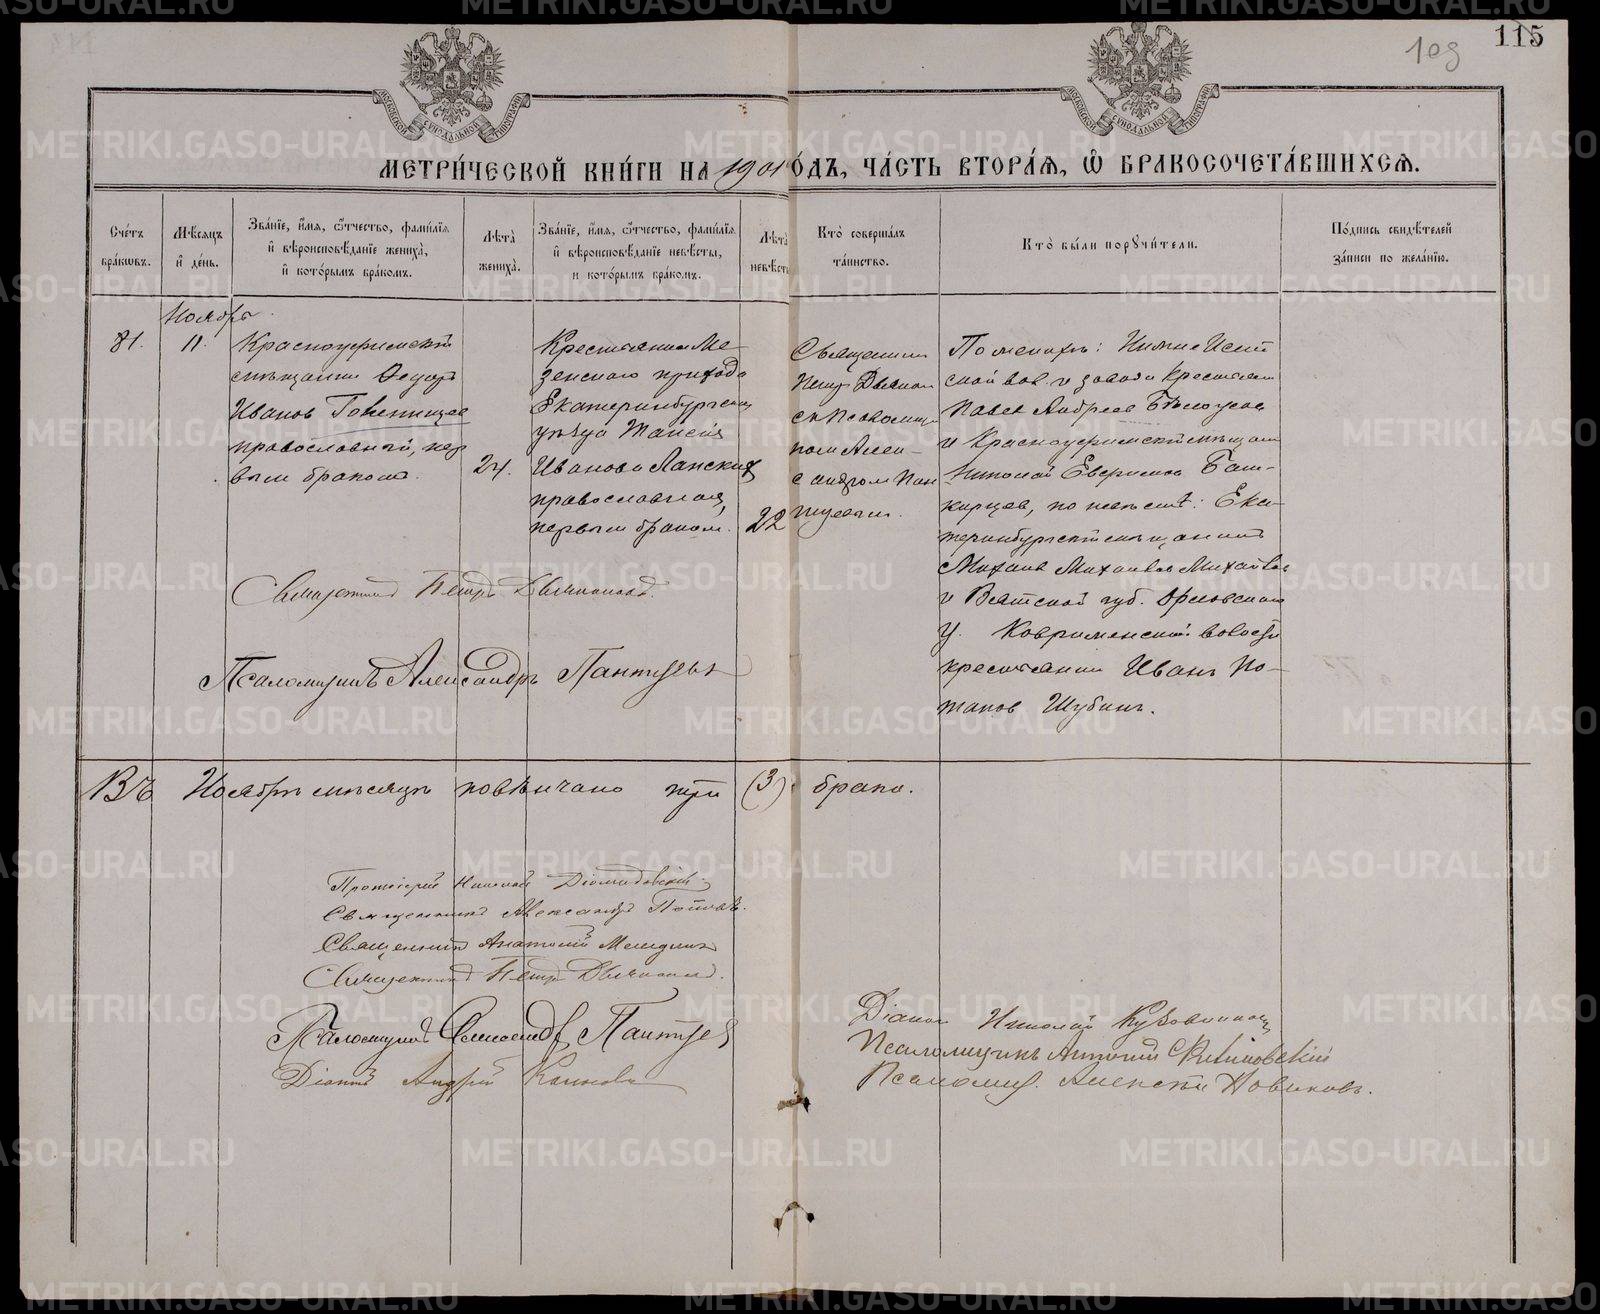 115
109
МОСКОВСКОЙ СѴНОДАЛЬНОЙ ТИПОГРАФІИ
МОСКОВСКОЙ СѴНОДАЛЬНОЙ ТИПОГРАФІИ
МЕТРИ́ЧЕСКОЙ КНИ́ГИ НА 1901 ГО́ДЪ, ЧА́СТЬ ВТОРА́Я, Ѿ БРАКОСОЧЕТА́ВШИХСЯ.
Сче́тъ бра́кѡвъ.
Мѣ́сяцъ и҆ де́нь.
Зва́нїе, и҆́мя, ѻ҆́тчество, фами́лїя и҆ вѣроисповѣ́данїе жениха̀, и҆ кото́рымъ бра́комъ.
Лѣ́та жениха̀.
Зва́нїе, и҆́мя, ѻ҆́тчество, фами́лїя и҆ вѣроисповѣ́данїе невѣ́сты, и кото́рымъ бра́комъ.
Лѣ́та невѣ́сты
Кто̀ соверша́лъ та́инство.
Кто̀ бы́ли порꙋчи́тели.
По́дпись свидѣ́телей за́писи по жела́нїю.
Ноябрь
81.
11.
Красноуфимскій
мѣщанинъ Ѳедоръ
Ивановъ
православный, пер
вымъ бракомъ.
24.
Крестьянка Ме-
зенскаго прихода
Екатеринбургскаго
уѣзда Таисія
Иванова Ланскихъ
православная,
первымъ бракомъ.
22
Священникъ
Петръ
съ Псаломщи
комъ Алек-
сандромъ Пан
туевымъ.
По женихѣ: Нижне Исет
ской вол. и завода крестьян
Павелъ Андреевъ Бѣлоусовъ
и Красноуфимскій мѣщан
Николай Башкирцевъ, по невѣстѣ: Ека-
теринбургскій мѣщанинъ
Михаилъ Михайловъ Михайлов
и Вятской губ. Орловскаго
у. волости
крестьянинъ Иванъ По-
таповъ Шубинъ.
Священникъ Петръ
Псаломщикъ Александръ Пантуевъ
Въ Ноябрѣ мѣсяцѣ повѣнчано три (3) брака.
Протоіерей Николай Діомидовскій.
Священникъ Александръ Поповъ.
Священникъ Анатолій
Священникъ Петръ
Псаломщикъ Александръ Пантуев
Діаконъ Андрей
Діаконъ Николай
Псаломщикъ
Псаломщ. Алексѣй Новиковъ.
METRIKI.GASO-URAL.RU